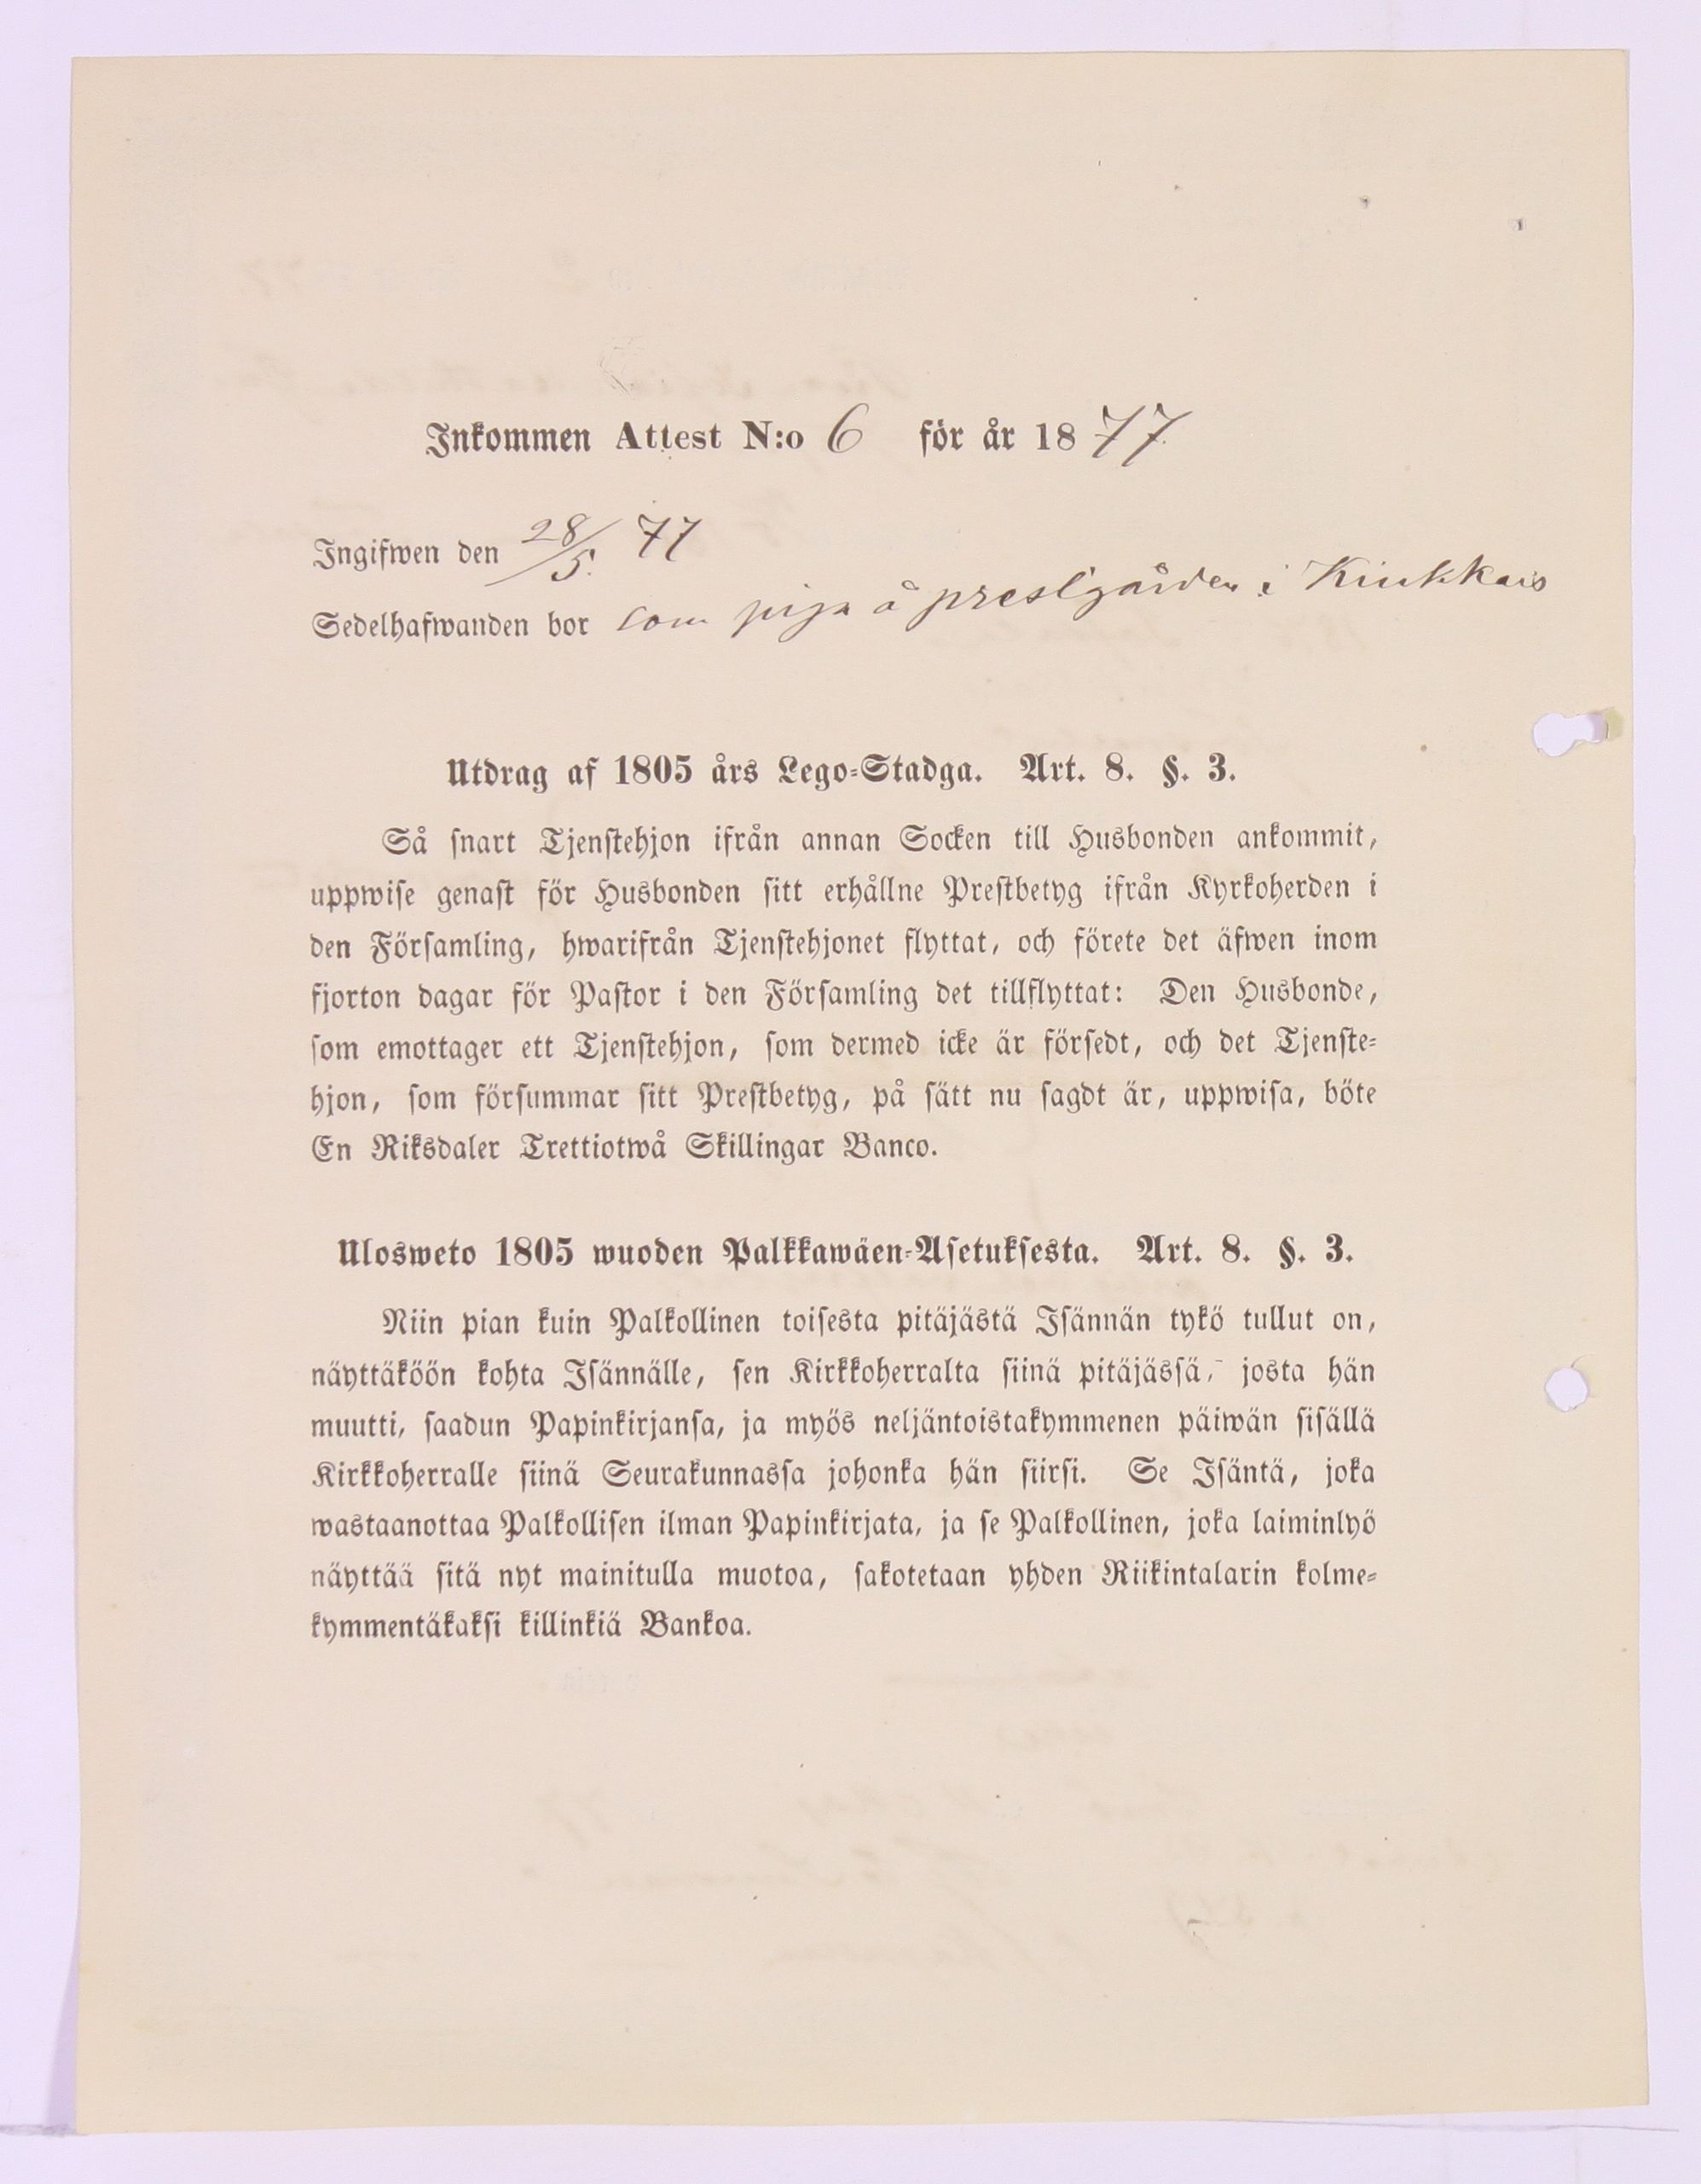 Inkommen Attest N:o 6 för år 1877.
Ingifwen den 28/5. 77
Sedelhafwanden bor som piga å prestgården i Kiukkais
Utdrag af 1805 års Lego-Stadga. Art. 8. §. 3.
Så snart Tjenstehjon ifrån annan Socken till Husbonden ankommit,
uppwise genast för Husbonden sitt erhållne Prestbetyg ifrån Kyrkoherden i
den Församling, hwarifrån Tjenstehjonet flyttat, och förete det äfwen inom
fjorton dagar för Pastor i den Församling det tillflyttat: Den Husbonde,
som emottager ett Tjenstehjon, som dermed icke är försedt, och det Tjenste-
hjon, som försummar sitt Prestbetyg, på sätt nu sagdt är, uppwisa, böte
En Riksdaler Trettiotwå Skillingar Banco.
Ulosweto 1805 wuoden Palkkawäen-Asetuksesta. Art. 8. §. 3.
Niin pian kuin Palkollinen toisesta pitäjästä Isännän tykö tullut on,
näyttäköön kohta Isännälle, sen Kirkkoherralta siinä pitäjässä, josta hän
muutti, saadun Papinkirjansa, ja myös neljäntoistakymmenen päiwän sisällä
Kirkkoherralle siinä Seurakunnassa johonka hän siirsi. Se Isäntä, joka
wastaanottaa Palkollisen ilman Papinkirjata, ja se Palkollinen, joka laiminlyö
näyttää sitä nyt mainitulla muotoa, sakotetaan yhden Riikintalarin kolme-
kymmentäkaksi killinkiä Bankoa.